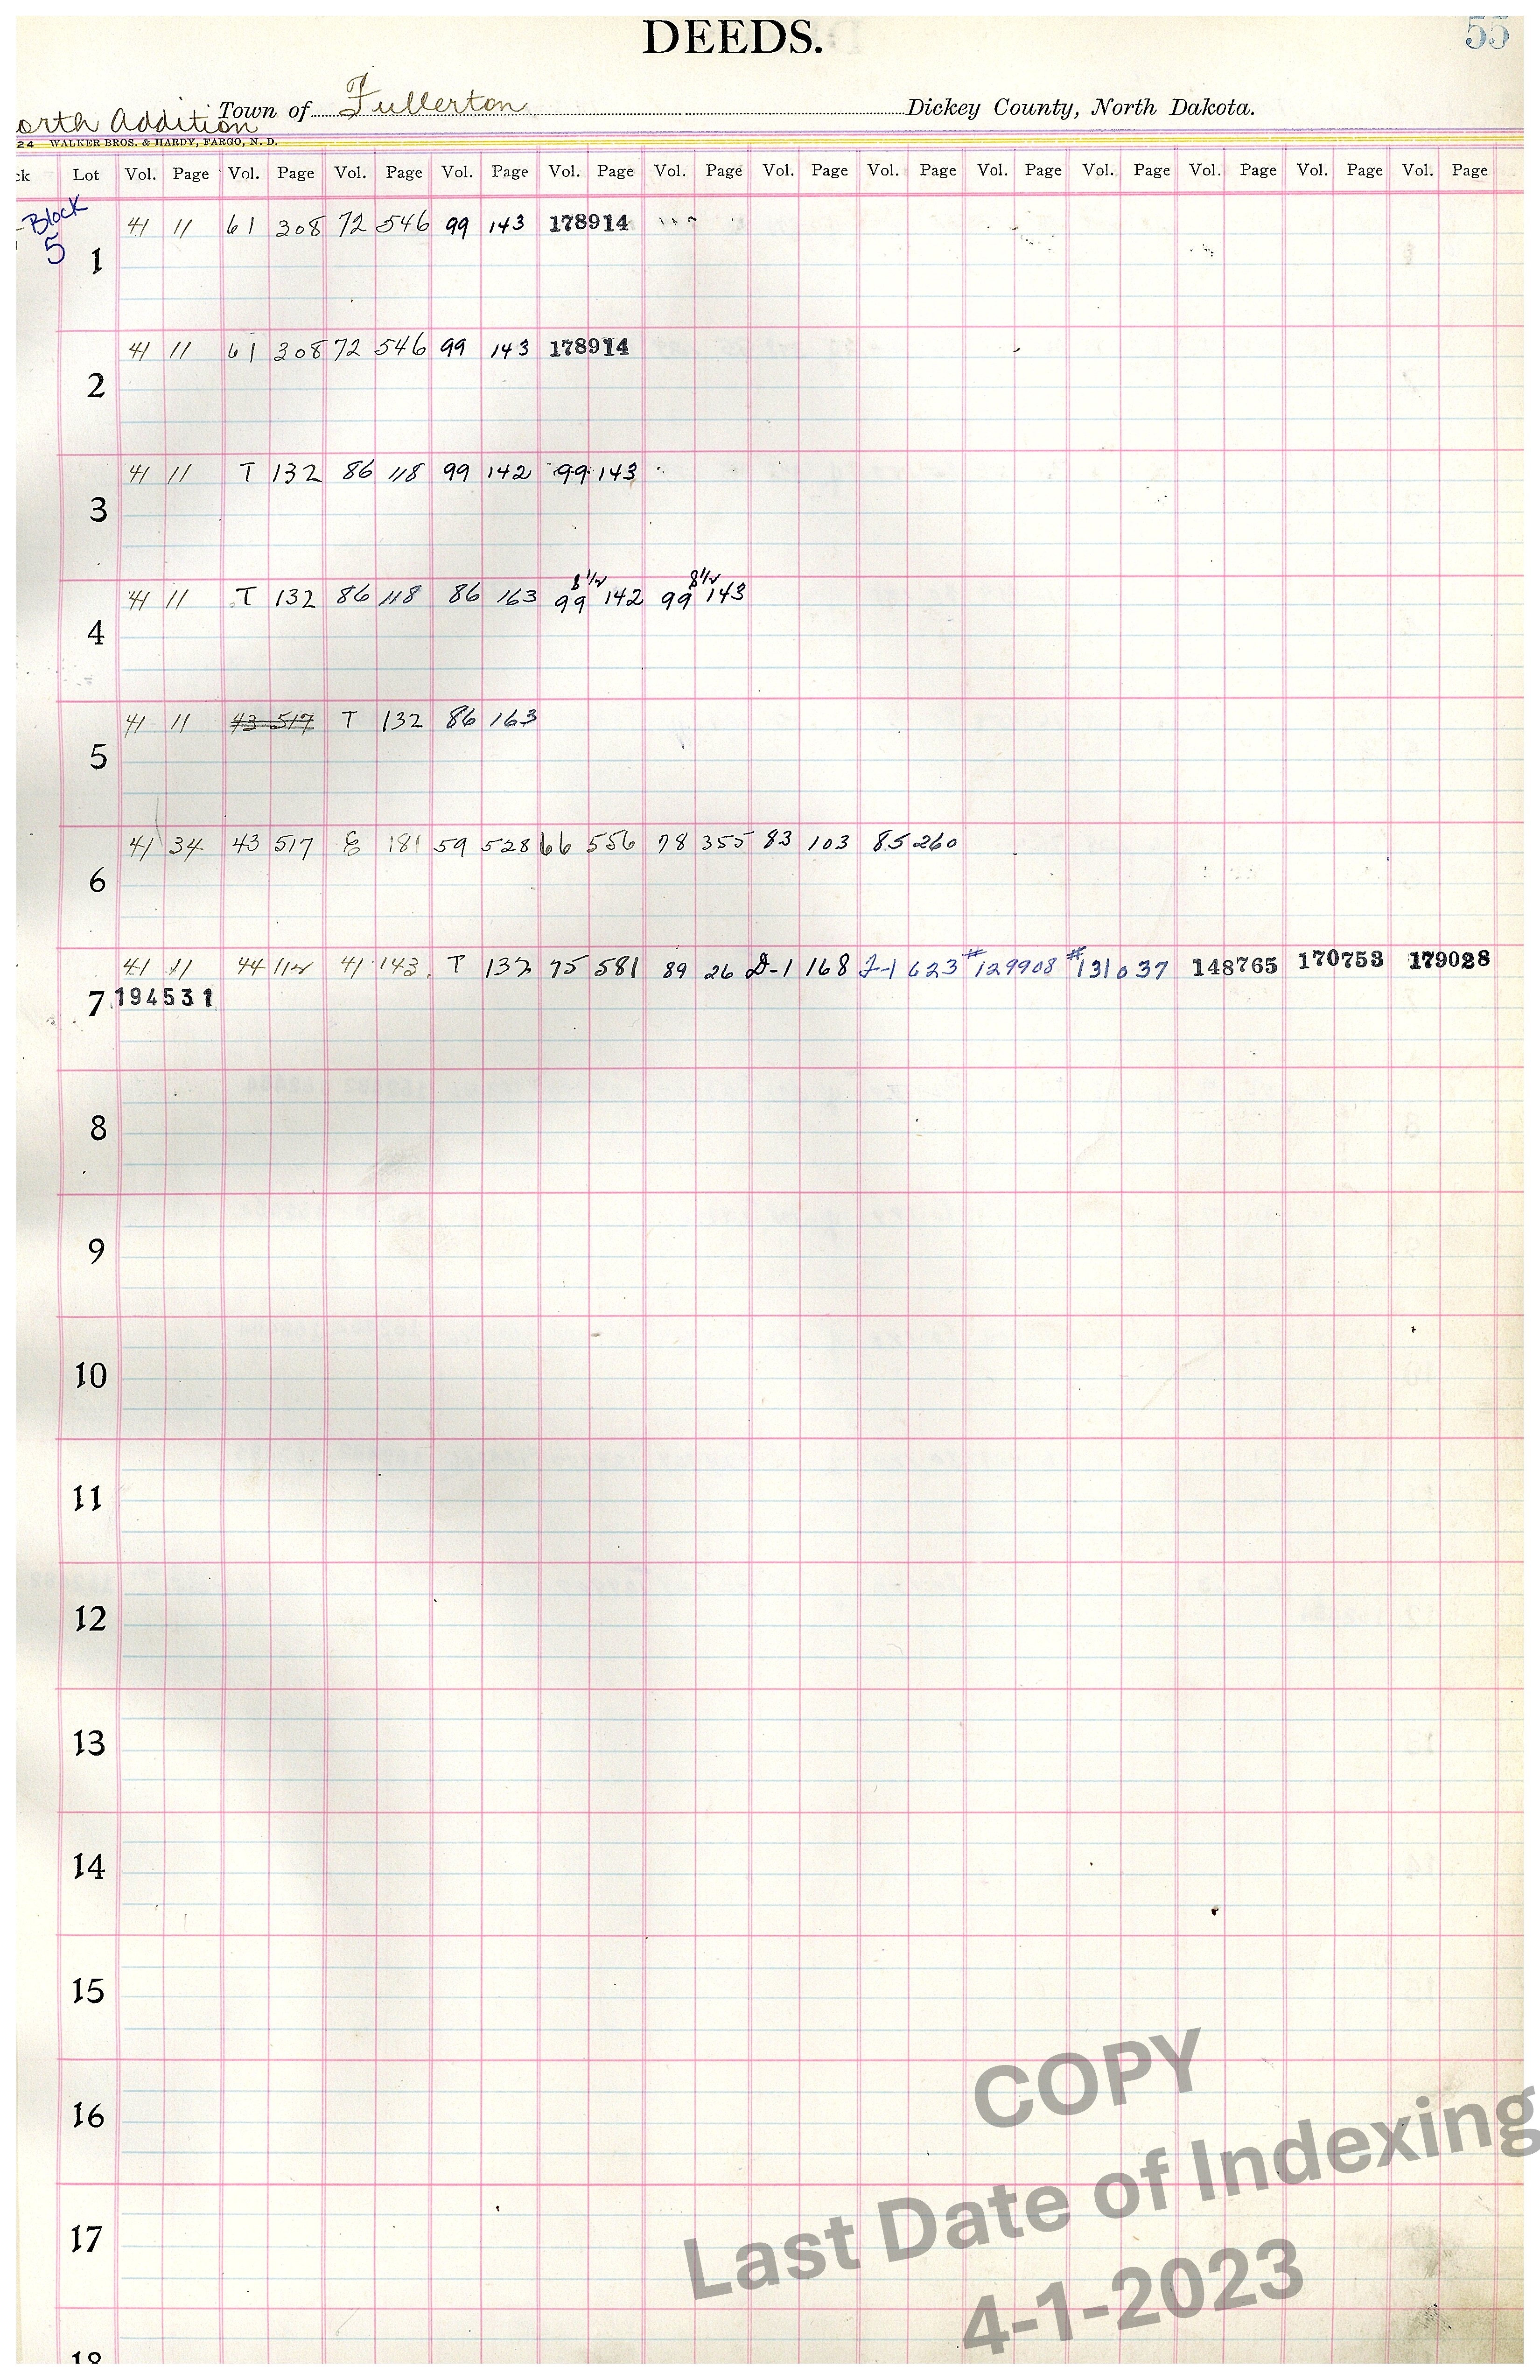 DEEDS.
55
orth Addition Town of Fullerton Dickey County, North Dakota.
24 WALKER BROS. & HARDY, FARGO, N. D.
ck Lot Vol. Page Vol. Page Vol. Page Vol. Page Vol. Page Vol. Page Vol. Page Vol. Page Vol. Page Vol. Page Vol. Page Vol. Page Vol. Page
Block
5
41 11 61 308 72 546 99 143 178914
1
41 11 61 308 72 546 99 143 178914
2
41 11 T 132 86 118 99 142 99 143
3
41 11 T 132 86 118 86 163 99 142 99 143
4
41 11 43 517 T 132 86 163
5
41 34 43 517 181 59 528 66 556 78 355 83 103 85 260
6
41 11 44 112 41 143 T 132 75 581 89 26 D-1 168 J-1 623 #129908 #131037 148765 170753 179028
7 194531
8
9
10
11
12
13
14
15
16
17
18
COPY
Last Date of Indexing
4-1-2023